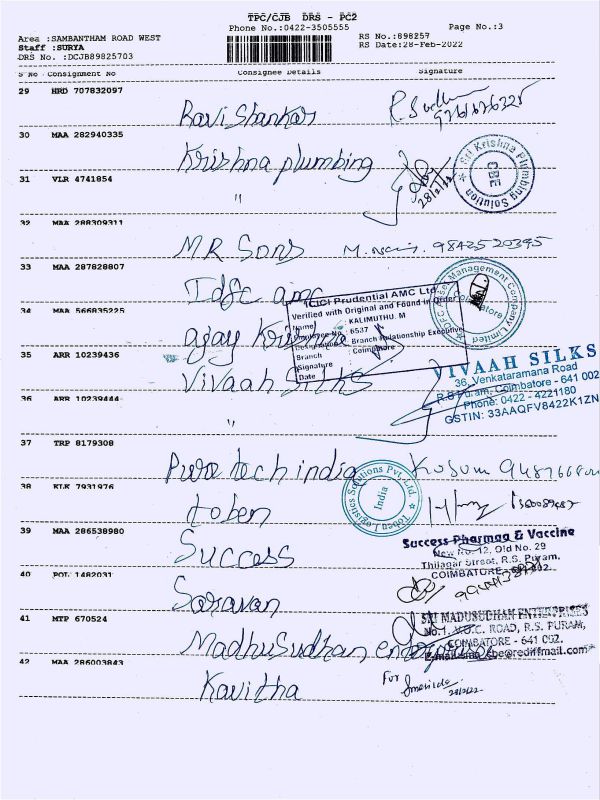 TPC/CJB DRS - PC2
Phone No.:0422-3505555
Page No.:3
Area :SAMBANTHAM ROAD WEST
RS No.:898257
Staff :SURYA
RS Date:28-Feb-2022
DRS No. :DCJB89825703
S No Consignment No Consignee Details Signature
29 HRD 707832097
Ravi Shankar
30 MAA 282940335
Krishna plumbing
28/2/22
Sri Krishna Plumbing Solution
CBE
31 VLR 4741854
"
32 MAA 288309311
MR Sons
9842520395
33 MAA 287828807
Idfc amc
Asset Management Company Limited
34 MAA 566835225
ajay Krishna
ICICI Prudential AMC Ltd
Verified with Original and Found in Order
Name : KALIMUTHU. M
Employee No : 6537
Designation : Branch Relationship Executive
Branch : Coimbatore
Signature
Date
35 ARR 10239436
Vivaah Silks
VIVAAH SILKS
36, Venkataramana Road
R.S Puram, Coimbatore - 641 002
Phone: 0422 - 4221180
GSTIN: 33AAQFV8422K1ZN
36 ARR 10239444
"
37 TRP 8179308
Pure tech india
Kusum
38 KLK 7931976
toben
Toben Logistics Solutions Pvt. Ltd.
India
39 MAA 286538980
Success
Success Pharma & Vaccine
New No. 12, Old No. 29
Thilagar Street, R.S. Puram,
COIMBATORE
40 POL 1482031
Saravan
41 MTP 670524
Madhusudhan enterprises
SRI MADUSUDHAN ENTERPRISES
No.1, V.O.C. ROAD, R.S. PURAM,
COIMBATORE - 641 002.
42 MAA 286003843
Kavitha
For
28/2/22